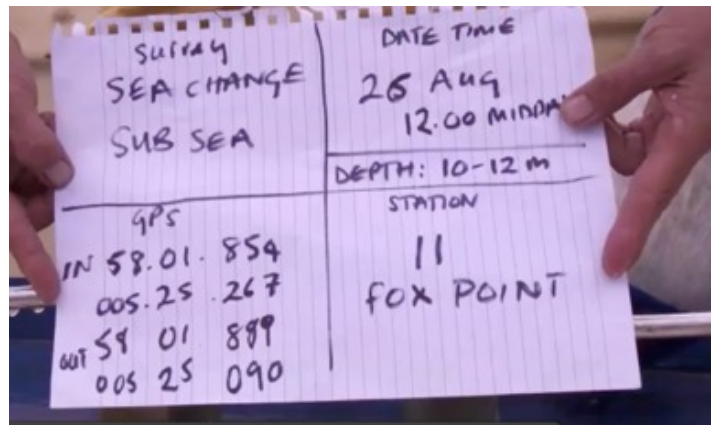 Survay
SEA CHANGE
SUB SEA
DATE TIME
26 Aug
12.00 MIDDA
DEPTH: 10-12 m
GPS
IN 58.01.854
005.25.267
OUT 58 01 889
005 25 090
STATION
11
FOX POINT